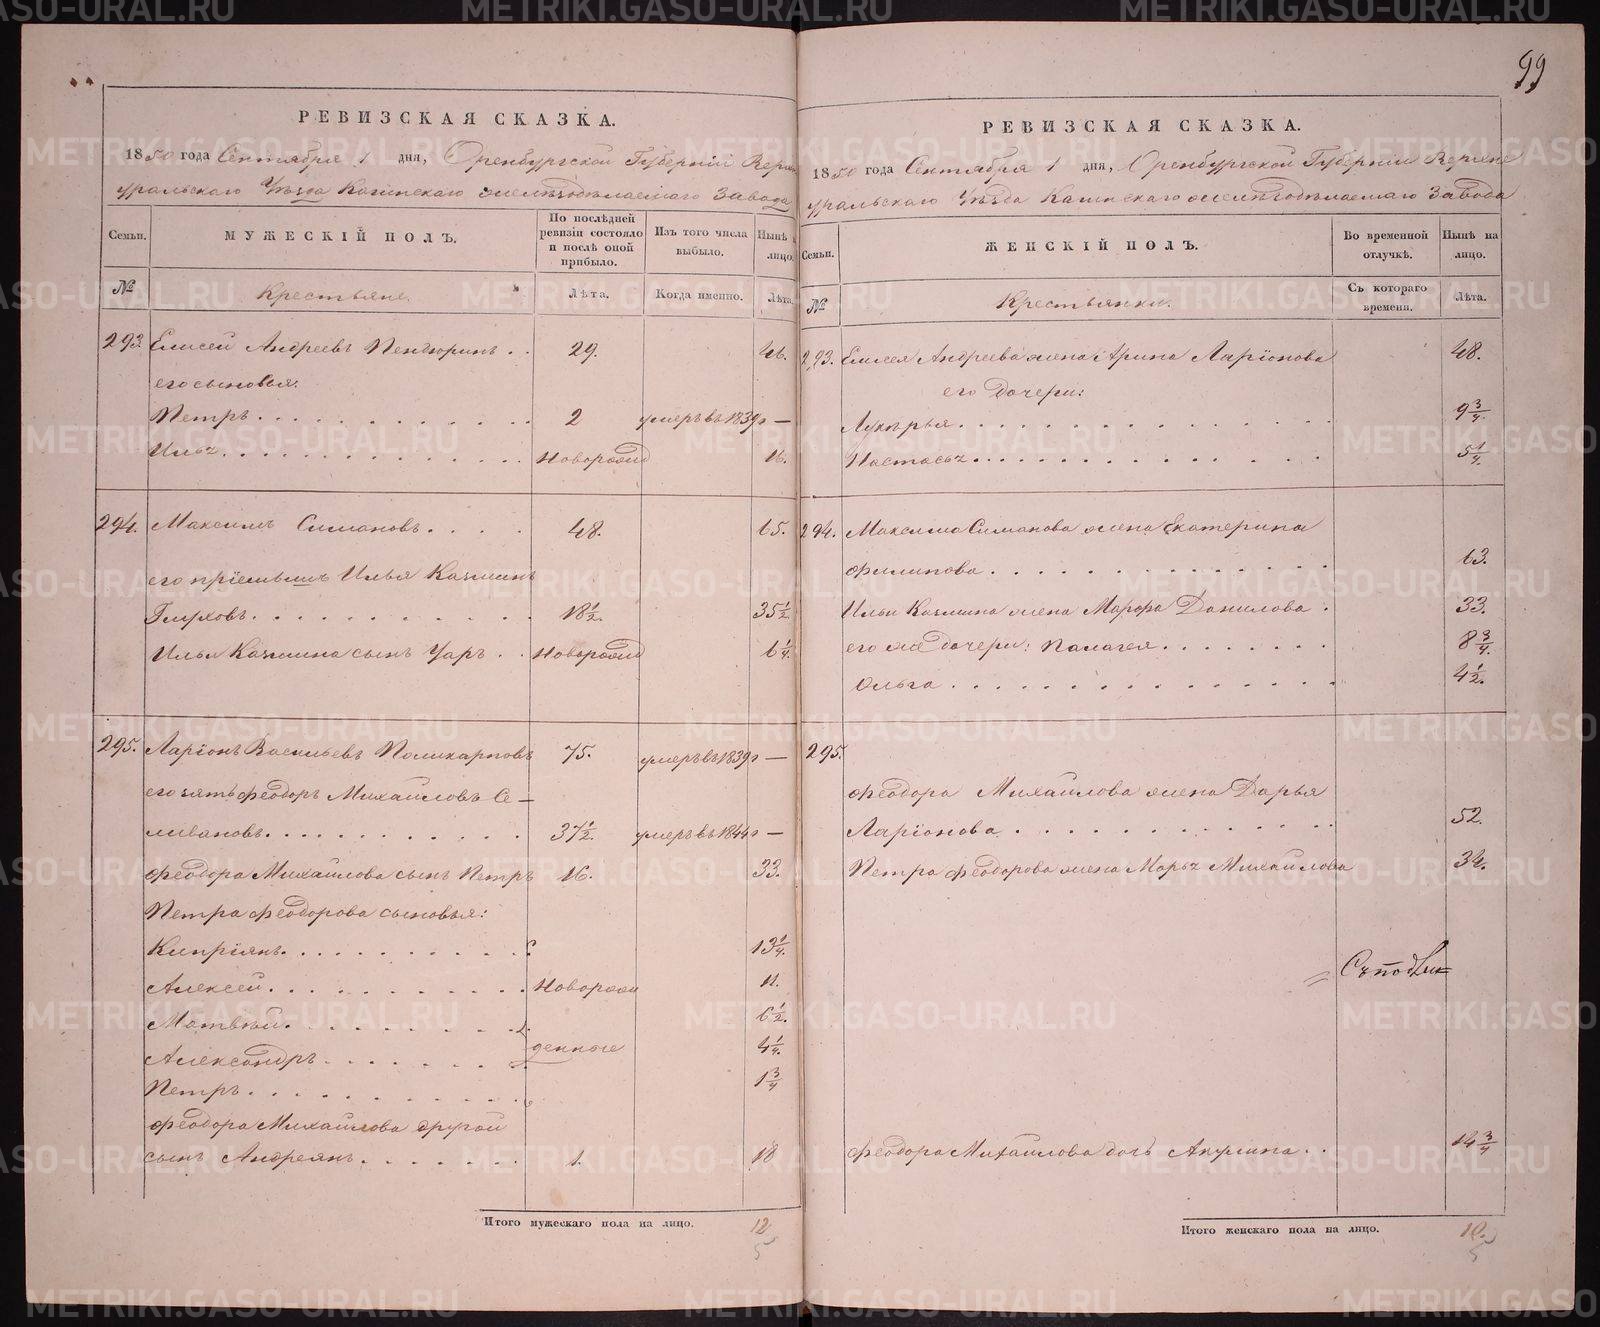 99
РЕВИЗСКАЯ СКАЗКА.
1850 года Сентября 1 дня, Оренбургской Губерніи Верхне
уральскаго Уѣзда Кагинскаго желѣзодѣлаемаго Завода
Семьи.
МУЖЕСКІЙ ПОЛЪ.
По послѣдней ревизіи состояло и послѣ оной прибыло.
Изъ того числа выбыло.
Нынѣ на лицо.
№
Крестьяне.
Лѣта.
Когда именно.
Лѣта.
293. Елисей Андреевъ Пендюринъ . . 29. 46.
его сыновья:
Петръ . . . 2 умеръ въ 1839 г —
Илья . . . Новорожд 16.
294. Максимъ Симановъ . . . 48. 65.
его пріемышъ Илья Казминъ
Глуховъ . . . 18½. 35½.
Ильи Казмина сынъ Уаръ . . Новорожд 6¼.
295. Ларіонъ Васильевъ Поликарповъ 75. умеръ въ 1839 г —
его зять Феодоръ Михайловъ Се-
ливановъ . . . 37½. умеръ въ 1844 г —
Феодора Михайлова сынъ Петръ 16. 33.
Петра Феодорова сыновья:
Кипріянъ . . . 13¼.
Алексей . . . Новорож 11.
Матвѣй . . . 6½.
Александръ . . . денные 4¼.
Петръ . . . 1¾
Феодора Михайлова другой
сынъ Андреянъ . . . 1. 18
Итого мужескаго пола на лицо. 12
5
РЕВИЗСКАЯ СКАЗКА.
1850 года Сентября 1 дня, Оренбургской Губерніи Верхне
уральскаго Уѣзда Кагинскаго желѣзодѣлаемаго Завода
Семьи.
ЖЕНСКІЙ ПОЛЪ.
Во временной отлучкѣ.
Нынѣ на лицо.
№
Крестьянки.
Съ котораго времени.
Лѣта.
293. Елисея Андреева жена Ирина Ларіонова 48.
его Дочери:
Лукерья . . . 9¾
Настасья . . . 5¼.
294. Максима Симанова жена Екатерина
Филипова . . . 63.
Ильи Казмина жена Марфа Данилова . 33.
его же дочери: Палагея . . . 8¾.
Ольга . . . 4½.
295.
Феодора Михайлова жена Дарья
Ларіонова . . . 52.
Петра Феодорова жена Марья Михайлова 34.
Феодора Михайлова дочь Акулина . . 14¾
Итого женскаго пола на лицо. 10.
5
METRIKI.GASO-URAL.RU